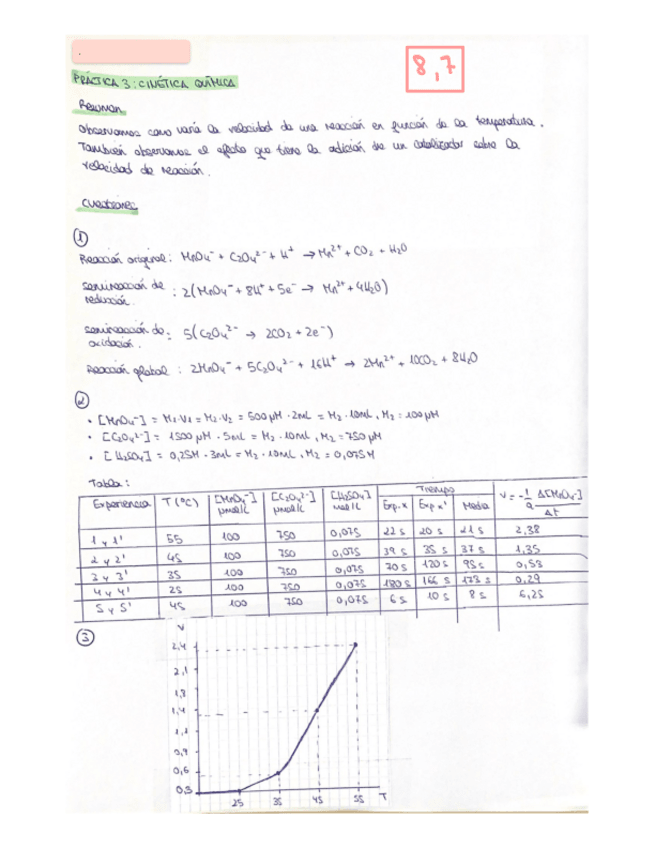 8,7
PRÁCTICA 3: CINÉTICA QUÍMICA
Resumen
Observamos como varía la velocidad de una reacción en función de la temperatura.
También observamos el efecto que tiene la adición de un catalizador sobre la
velocidad de reacción.
Cuestiones
1
Reacción original: MnO₄⁻ + C₂O₄²⁻ + H⁺ → Mn²⁺ + CO₂ + H₂O
semirreacción de reducción : 2(MnO₄⁻ + 8H⁺ + 5e⁻ → Mn²⁺ + 4H₂O)
semirreacción de oxidación : 5(C₂O₄²⁻ → 2CO₂ + 2e⁻)
Reacción global : 2MnO₄⁻ + 5C₂O₄²⁻ + 16H⁺ → 2Mn²⁺ + 10CO₂ + 8H₂O
2
• [MnO₄⁻] = M₁·V₁ = M₂·V₂ = 500μM · 2mL = M₂ · 10mL, M₂ = 100μM
• [C₂O₄²⁻] = 1500μM · 5mL = M₂ · 10mL, M₂ = 750μM
• [H₂SO₄] = 0,25M · 3mL = M₂ · 10mL, M₂ = 0,075M
Tabla:
Experiencia T(ºC) [MnO₄⁻] μmol/L [C₂O₄²⁻] μmol/L [H₂SO₄] mol/L Tiempo Exp.x Exp x' Media v = -1/a Δ[MnO₄⁻]/Δt
1 y 1' 55 100 750 0,075 22 s 20 s 21 s 2,38
2 y 2' 45 100 750 0,075 39 s 35 s 37 s 1,35
3 y 3' 35 100 750 0,075 70 s 120 s 95 s 0,53
4 y 4' 25 100 750 0,075 180 s 166 s 173 s 0,29
5 y 5' 45 100 750 0,075 6 s 10 s 8 s 6,25
3
V
2,4
2,1
1,8
1,4
1,1
0,9
0,6
0,3
25 35 45 55 T